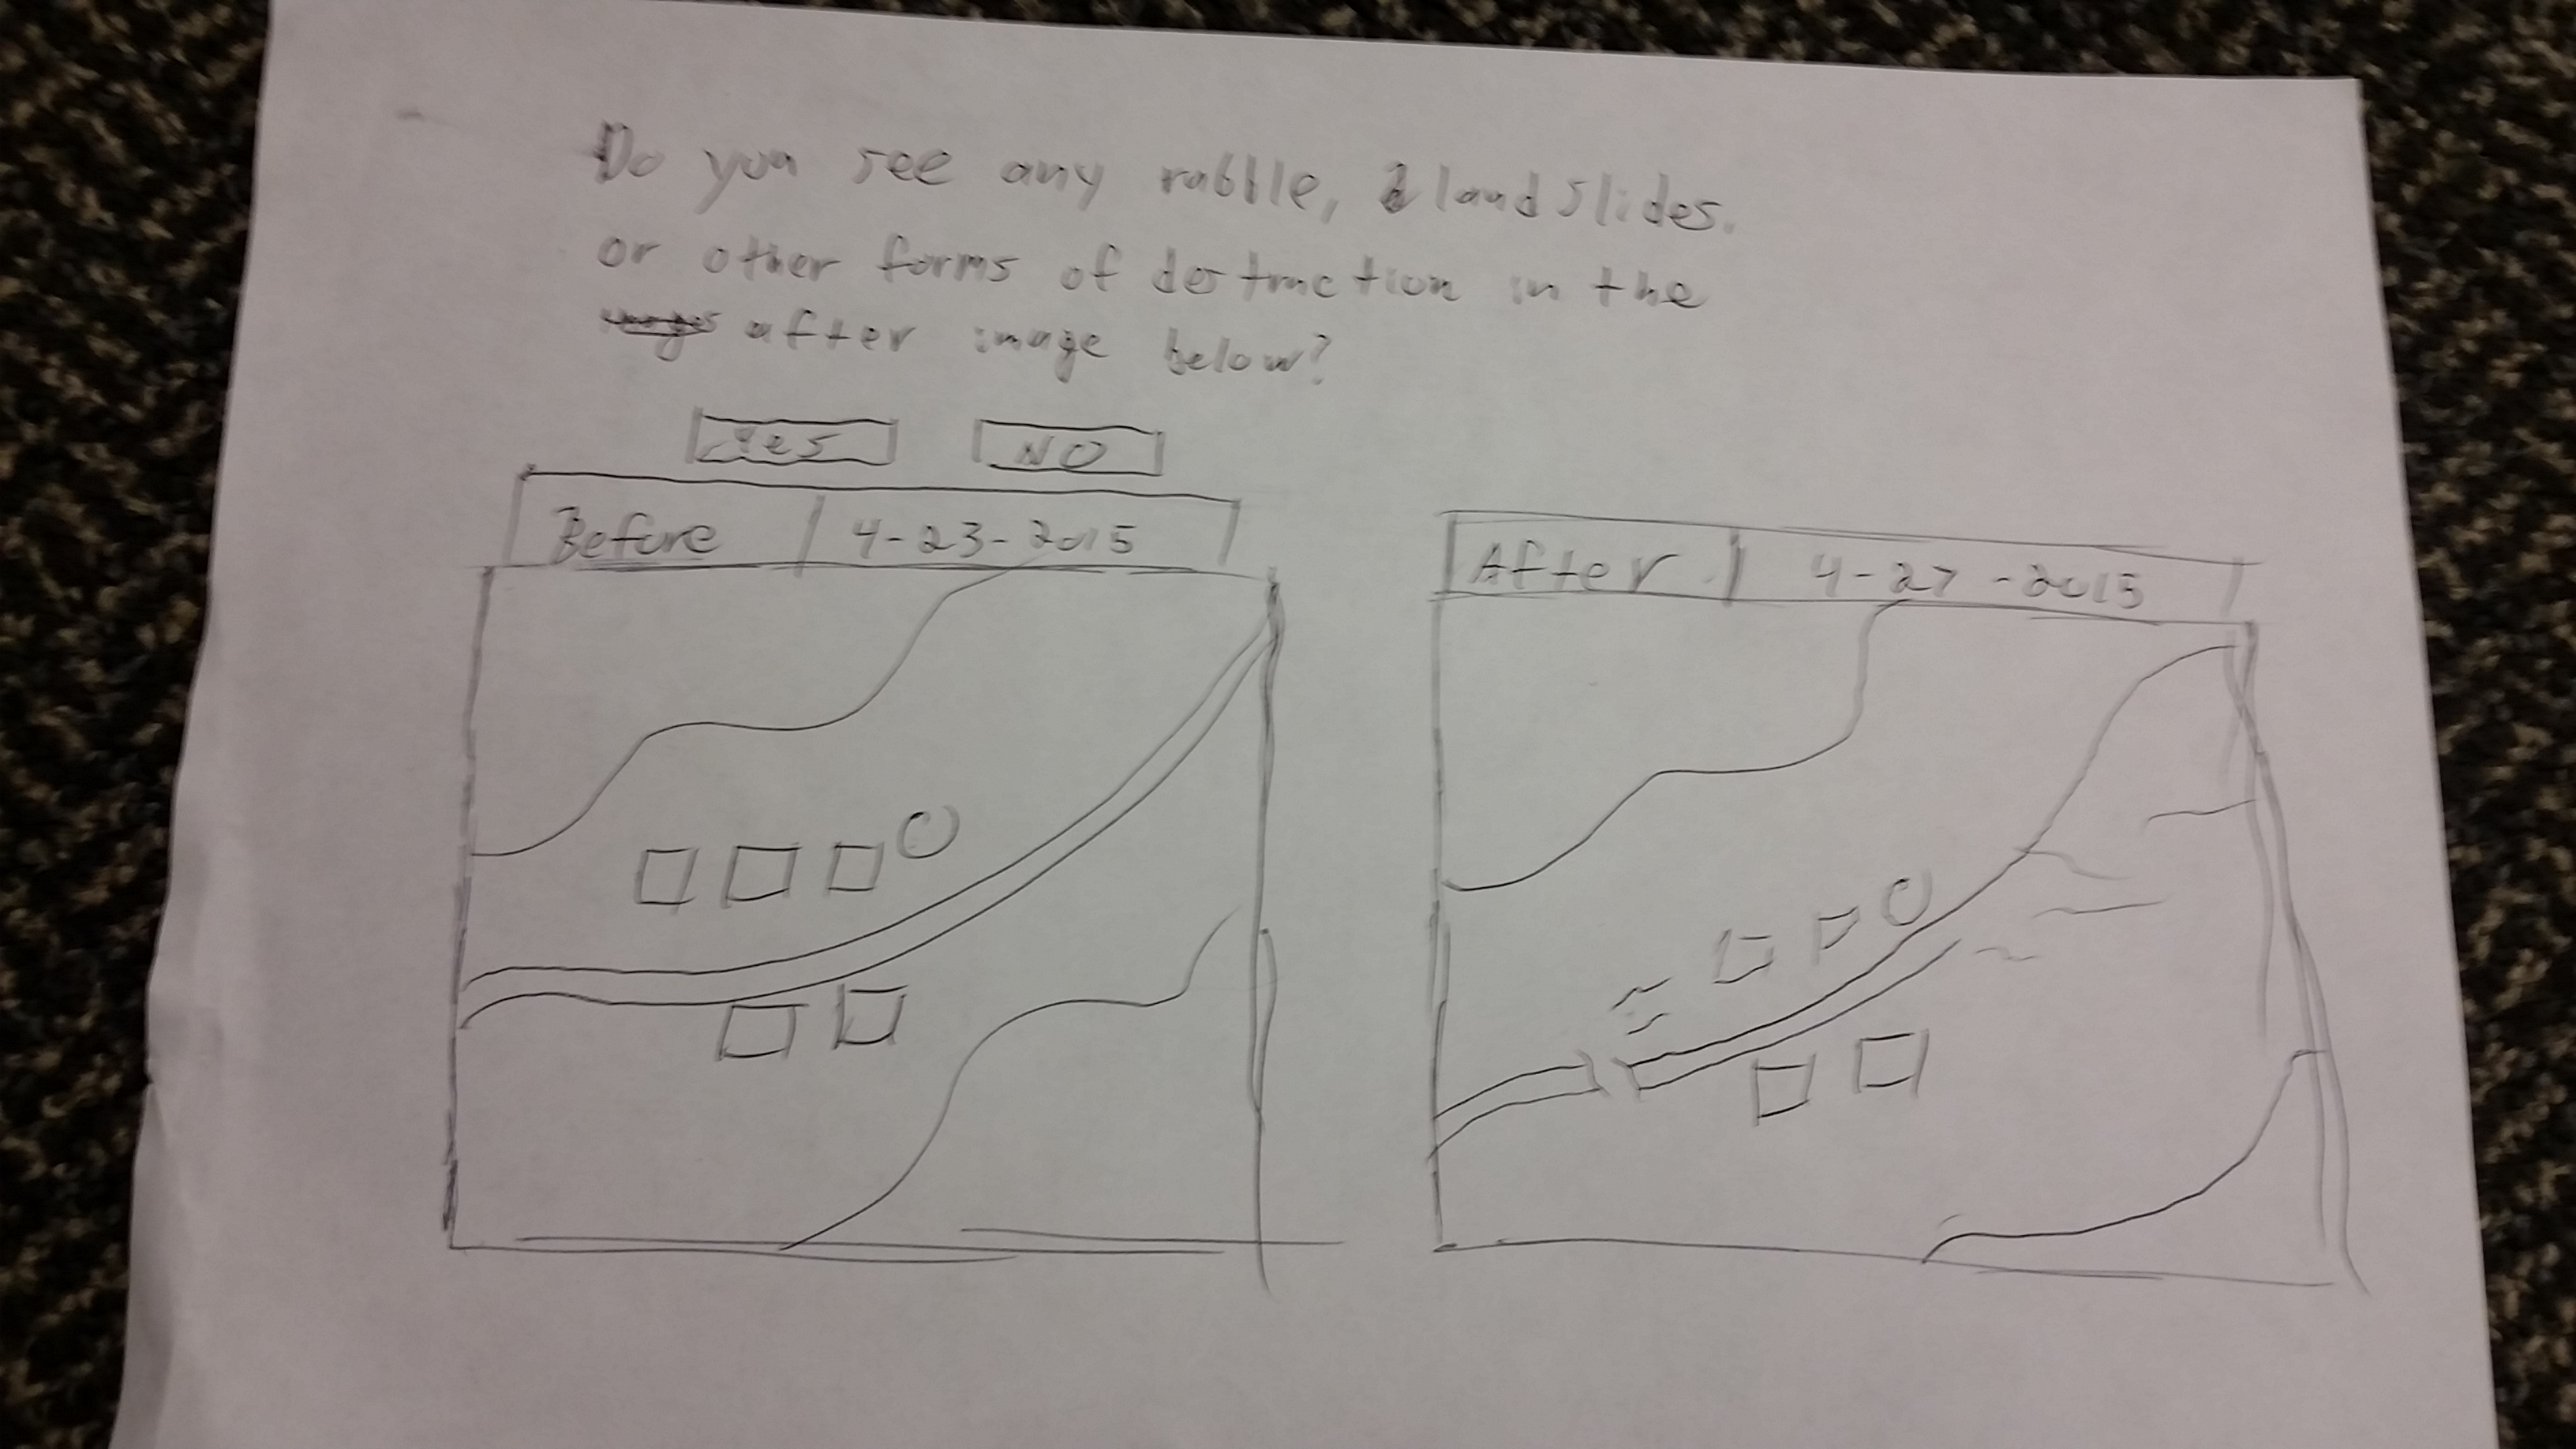 Do you see any rubble, landslides.
or other forms of destruction in the
after image below?
Yes NO
Before 4-23-2015
After 4-27-2015